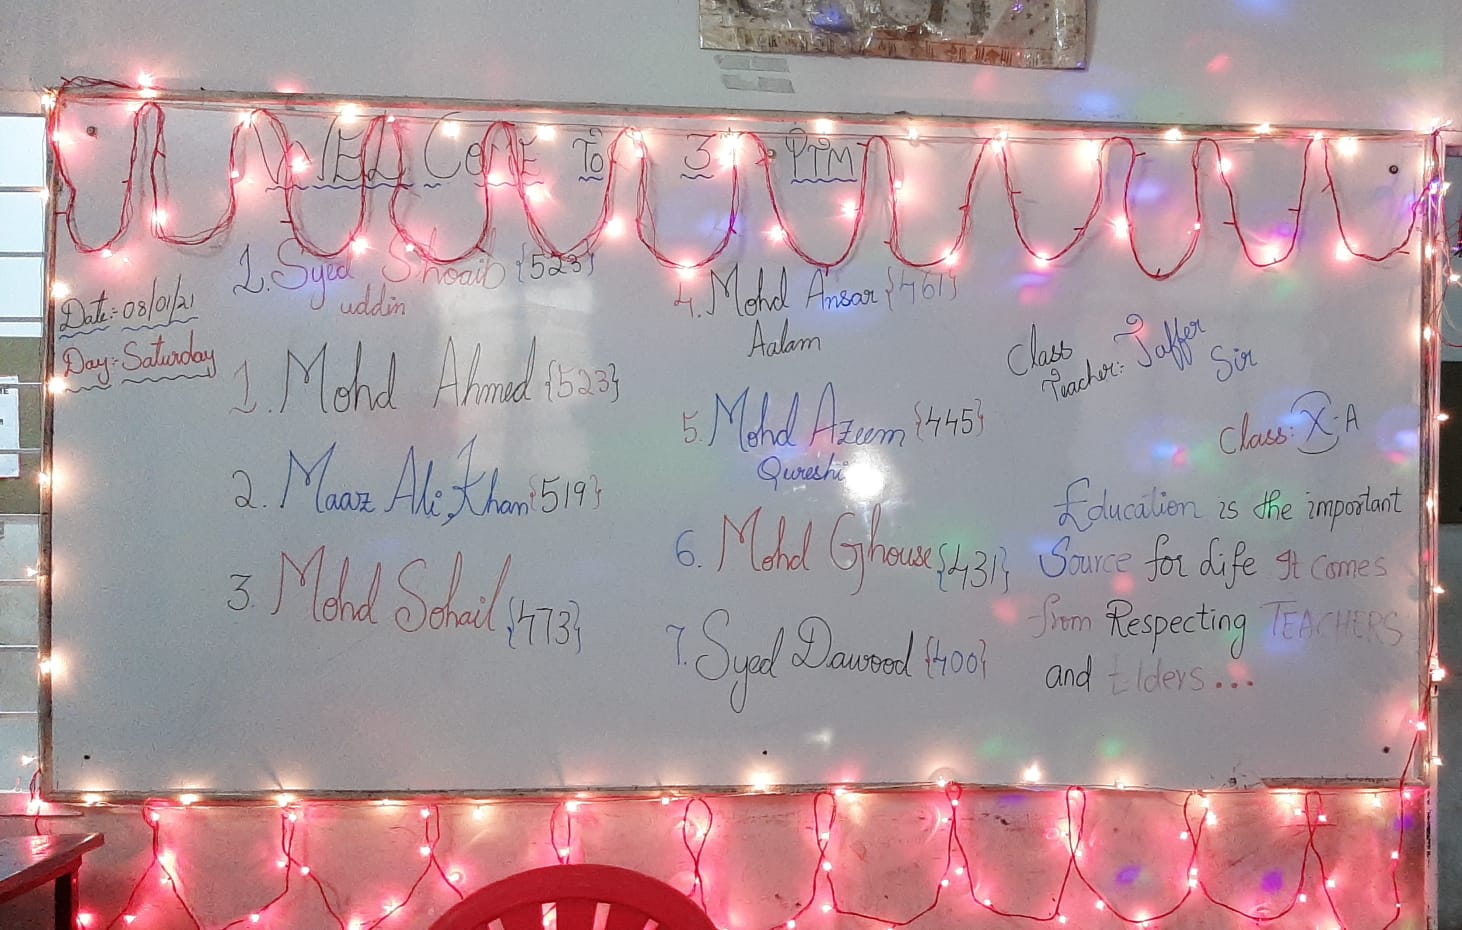 WEL Come To 3 PTM
Date:- 08/01/21
Day:- Saturday
1. Syed Shoaib {523}
uddin
1. Mohd Ahmed {523}
2. Maaz Ali Khan {519}
3. Mohd Sohail {473}
4. Mohd Ansar {461}
Aalam
5. Mohd Azeem {445}
Qureshi
6. Mohd Ghouse {431}
7. Syed Dawood {400}
Class
Teacher:- Jaffer
Sir
Class: X-A
Education is the important
Source for Life It Comes
from Respecting TEACHERS
and Elders...